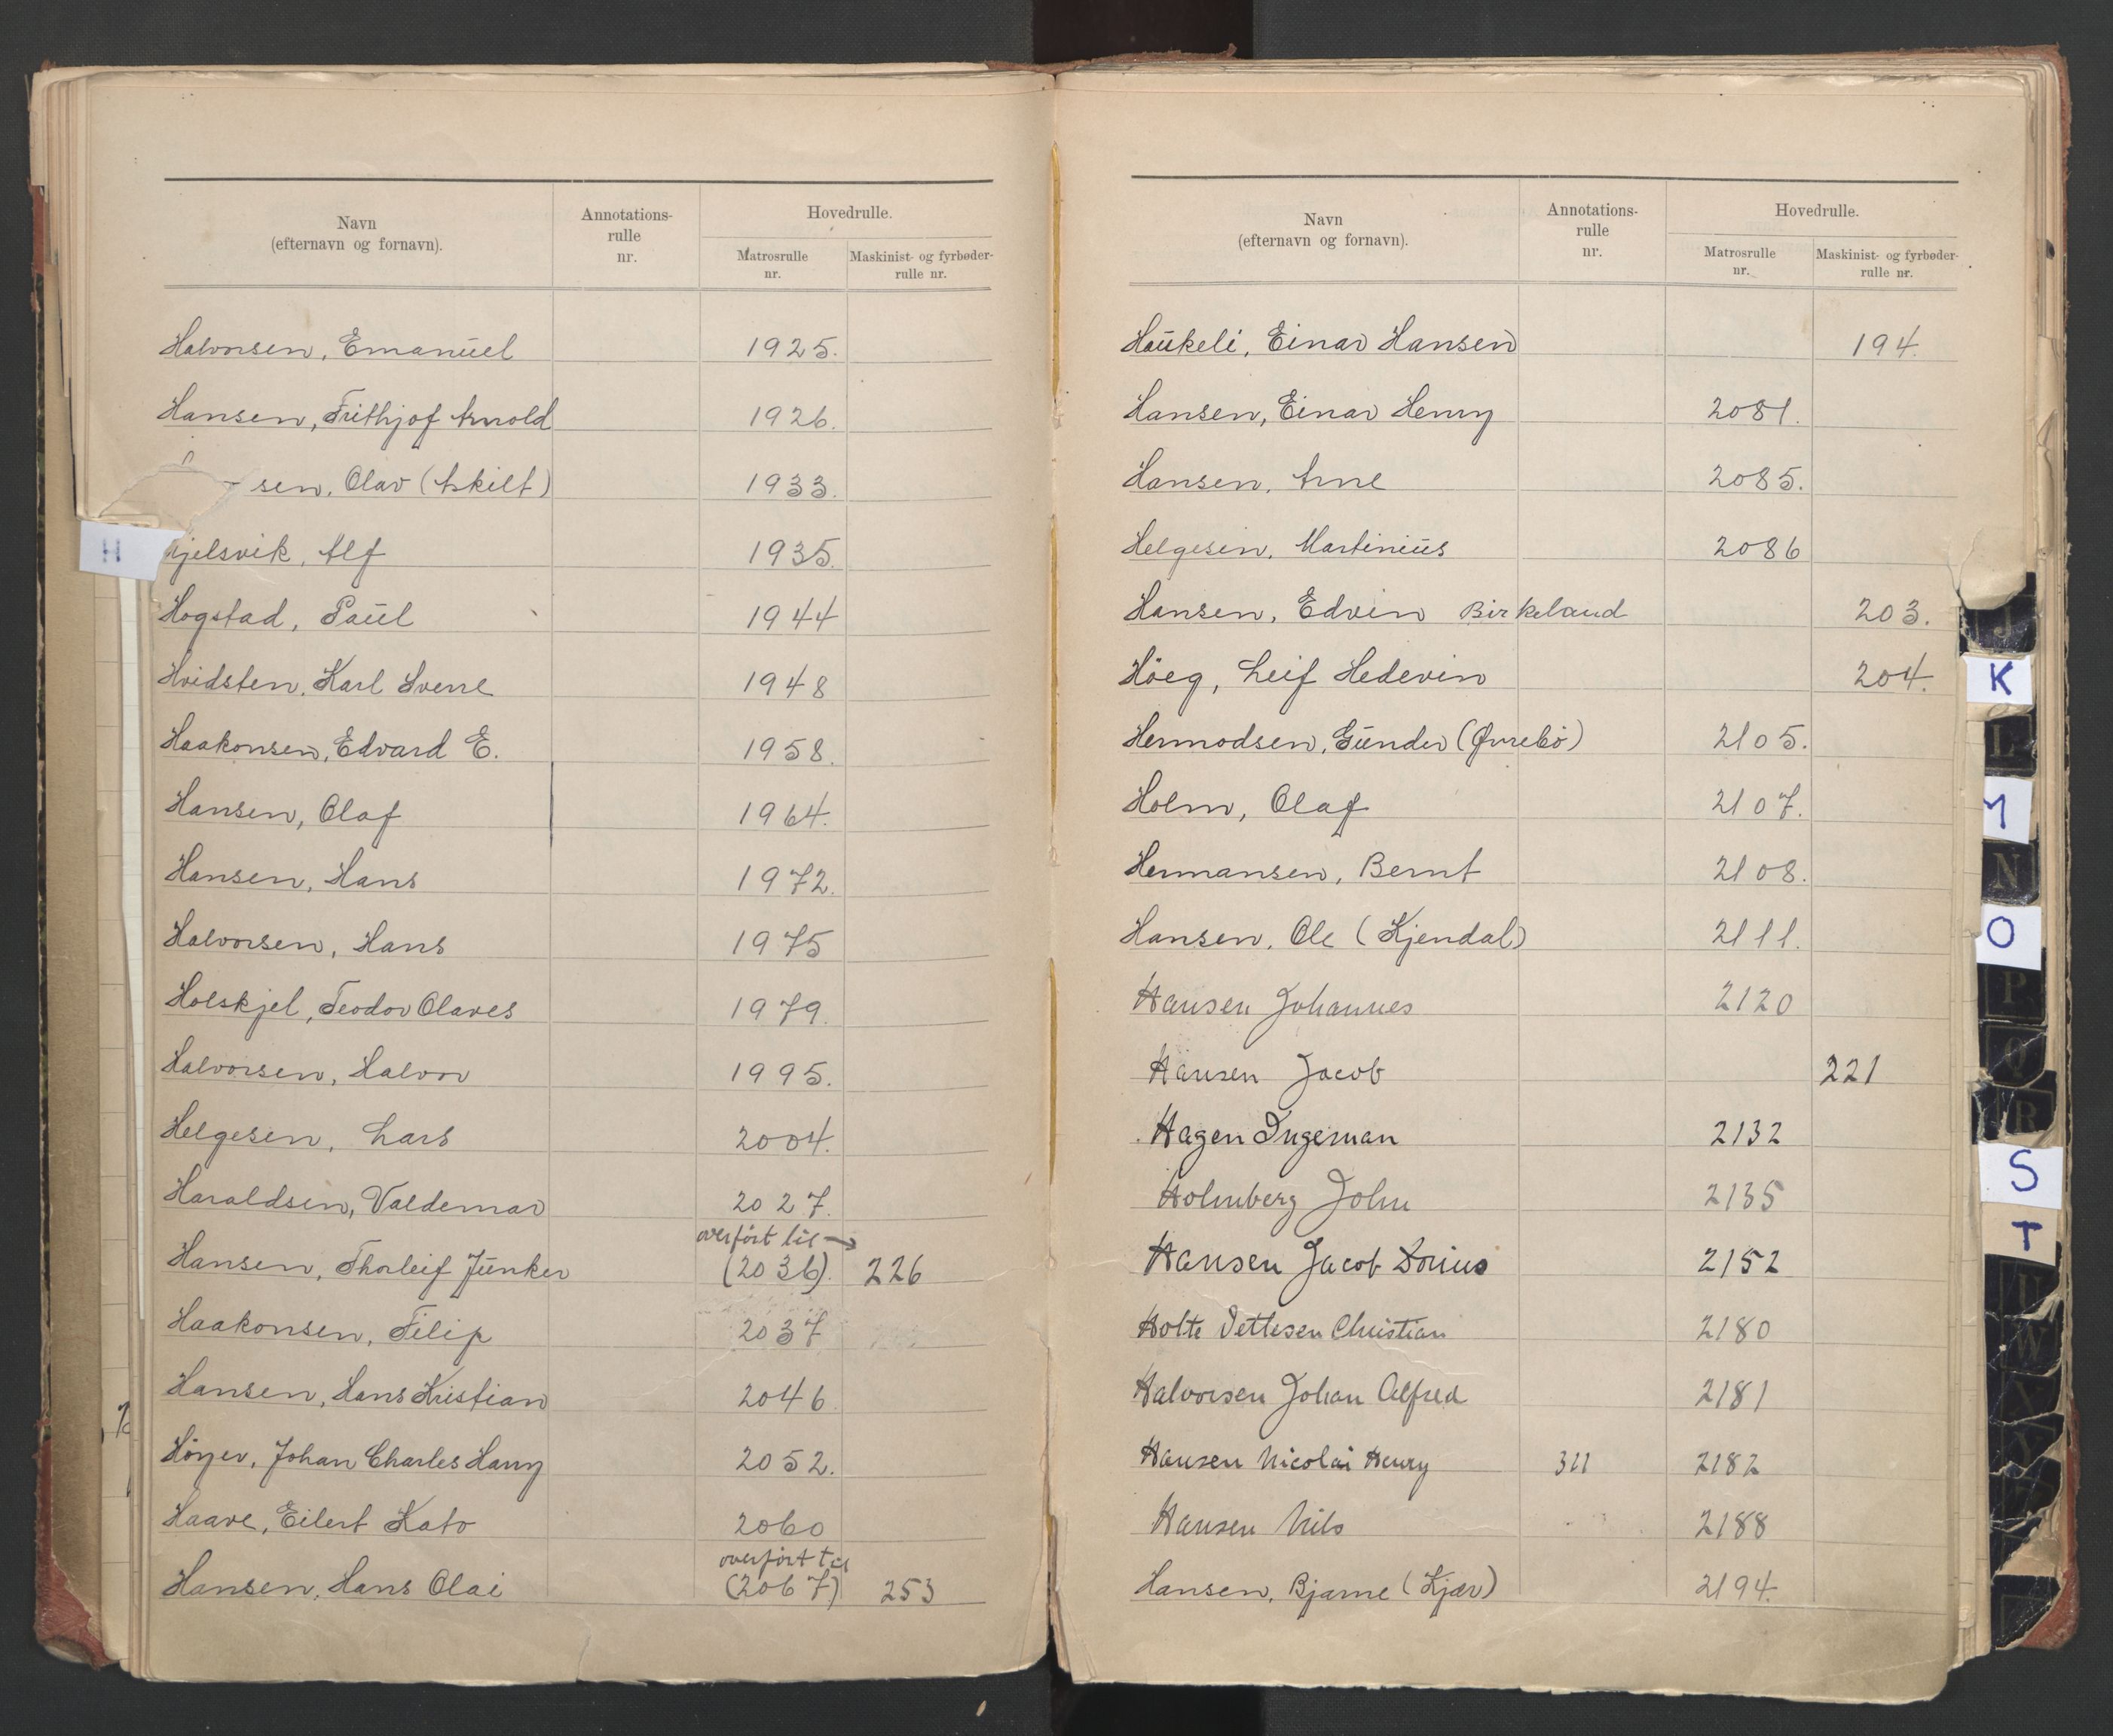 Navn
(efternavn og fornavn).
Annotations-
rulle
nr.
Hovedrulle.
Matrosrulle
nr.
Maskinist- og fyrbøder-
rulle nr.
Halvorsen, Emanuel 1925.
Hansen, Frithjof Arnold 1926.
sen, Olav (Askilt) 1933.
jelsvik, Alf 1935.
Hogstad, Paul 1944
Hvidsten, Karl Sverre 1948
Haakonsen, Edvard E. 1958.
Hansen, Olaf 1964.
Hansen, Hans 1972.
Halvorsen, Hans 1975
Holskjel, Teodor Olaves 1979.
Halvorsen, Halvor 1995.
Helgesen, Lars 2004.
Haraldsen, Valdemar 2027.
overført til →
Hansen, Thorleif Junker (2036). 226
Haakonsen, Filip 2037
Hansen, Hans Kristian 2046
Höyer, Johan Charles Harry 2052.
Haave, Eilert Kato 2060
overført til
Hansen, Hans Olai (2067) 253
H
Navn
(efternavn og fornavn).
Annotations-
rulle
nr.
Hovedrulle.
Matrosrulle
nr.
Maskinist- og fyrbøder-
rulle nr.
Haukeli, Einar Hansen 194.
Hansen, Einar Henry 2081.
Hansen, Arne 2085.
Helgesen, Martinius 2086
Hansen, Edvin Birkeland 203.
Höeg, Leif Hedevin 204.
Hermodsen, Gunder (Øvrebö) 2105.
Holm, Olaf 2107.
Hermansen, Bernt 2108.
Hansen, Ole (Kjendal) 2111.
Hansen Johannes 2120
Hansen Jacob 221
Hagen Ingeman 2132
Holmberg John 2135
Hansen Jacob Dorius 2152
Holte Dettesen Christian 2180
Halvorsen Johan Alfred 2181
Hansen Nicolai Henry 311 2182
Hansen Nils 2188
Hansen, Bjarne (Kjær) 2194.
J
K
L
M
N
O
P
Q
R
S
T
U
W
X
Y